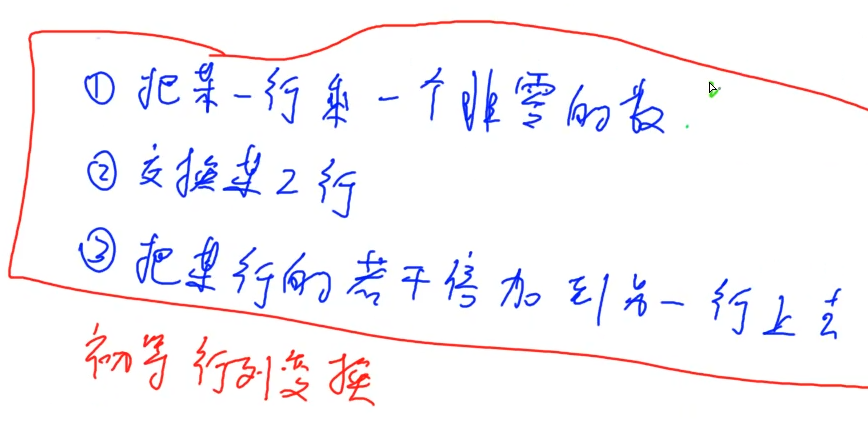 ① 把某一行乘一个非零的数.
② 交换某2行
③ 把某行的若干倍加到另一行上去
初等行列变换